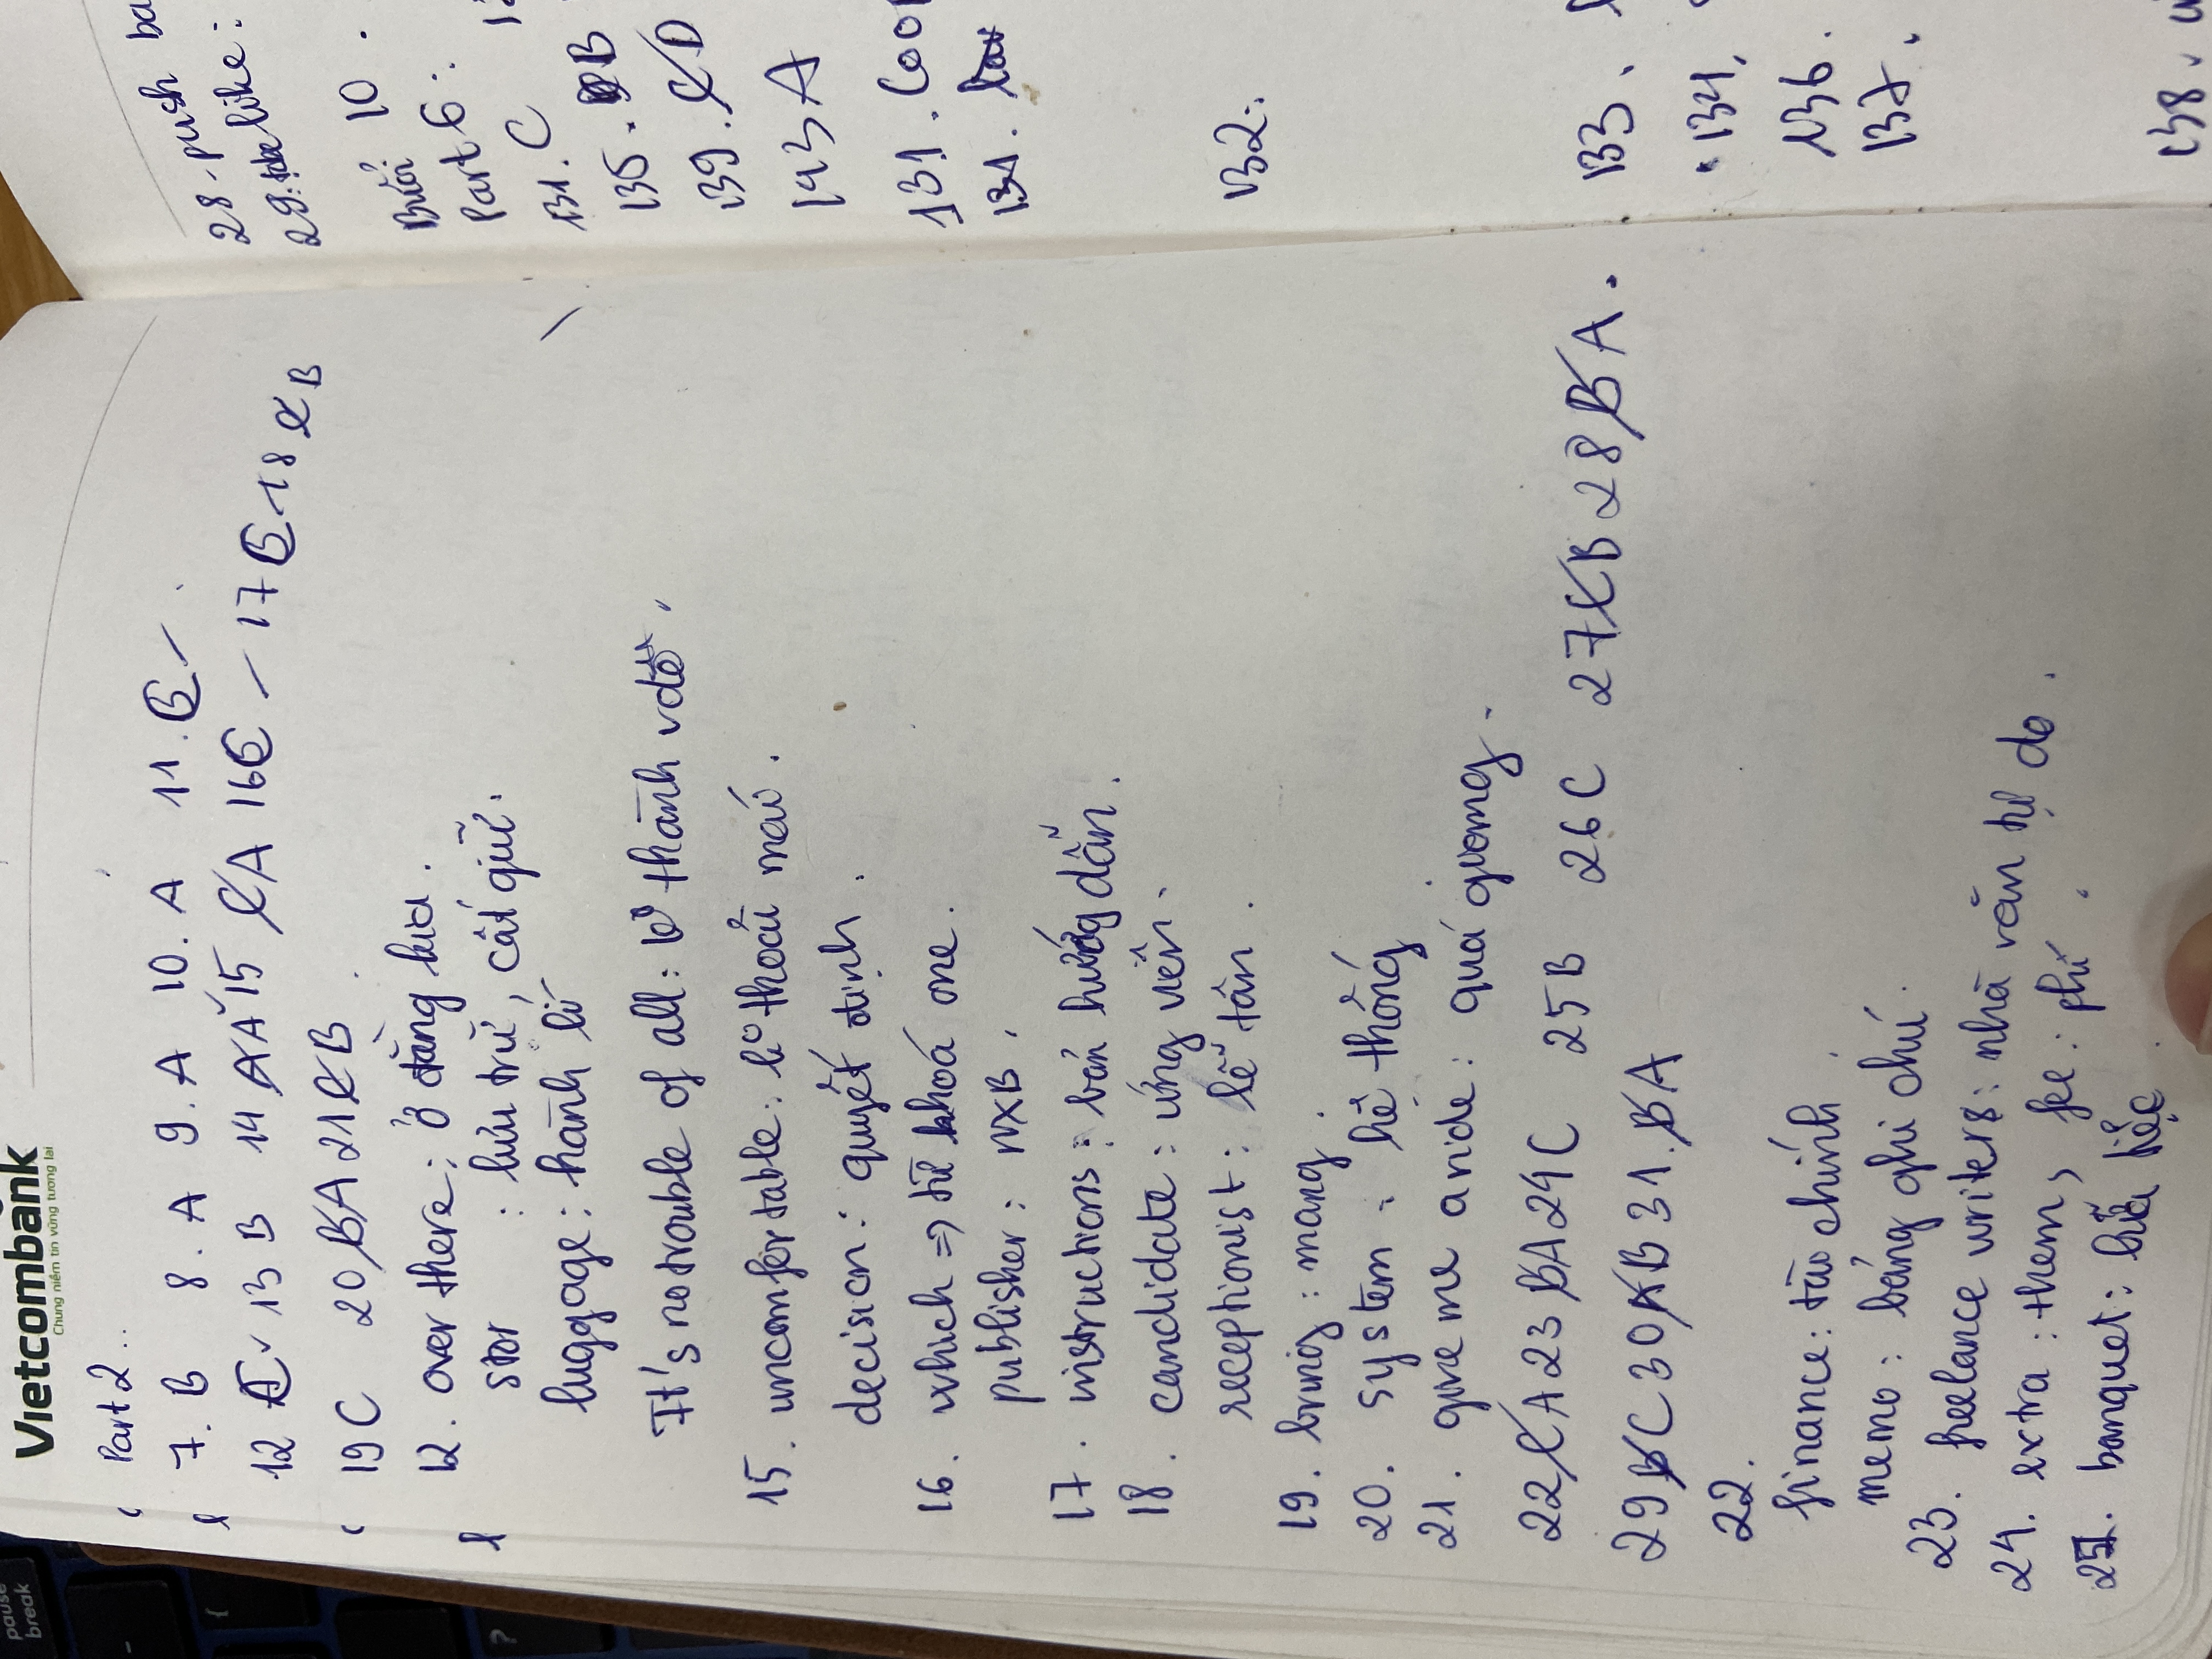 pause
break
?
Vietcombank
Chung niềm tin vững tương lai
Part 2 ..
7. B 8. A 9. A 10. A 11. C
12 C 13 B 14 A A 15 C A 16 C 17 C 18 C B
19 C 20 B A 21 C B
12. over there: ở đằng kia.
stor : lưu trữ, cất giữ.
luggage: hành lí
It's no trouble of all: k° thành vđề.
15. uncomfortable: k° thoải mái.
decision: quyết định.
16. which => từ khoá one.
publisher: NXB.
17. instructions: bản hướng dẫn.
18. candidate: ứng viên.
receptionist: lễ tân.
19. bring: mang.
20. system: hệ thống
21. give me a ride: quá giang.
22 C A 23 B A 24 C 25 B 26 C 27 C B 28 B A.
29 B C 30 A B 31. B A
22.
finance: tài chính.
memo: bảng ghi chú.
23. freelance writers: nhà văn tự do.
24. extra: thêm, fee: phí.
25. banquet: bữa tiệc.
28 - push ba
29. to be like:
Buổi 10.
Part 6:
131. C
135. B
139. C D
143 A
131. Coop
131.
132.
133.
134.
136.
137.
138.